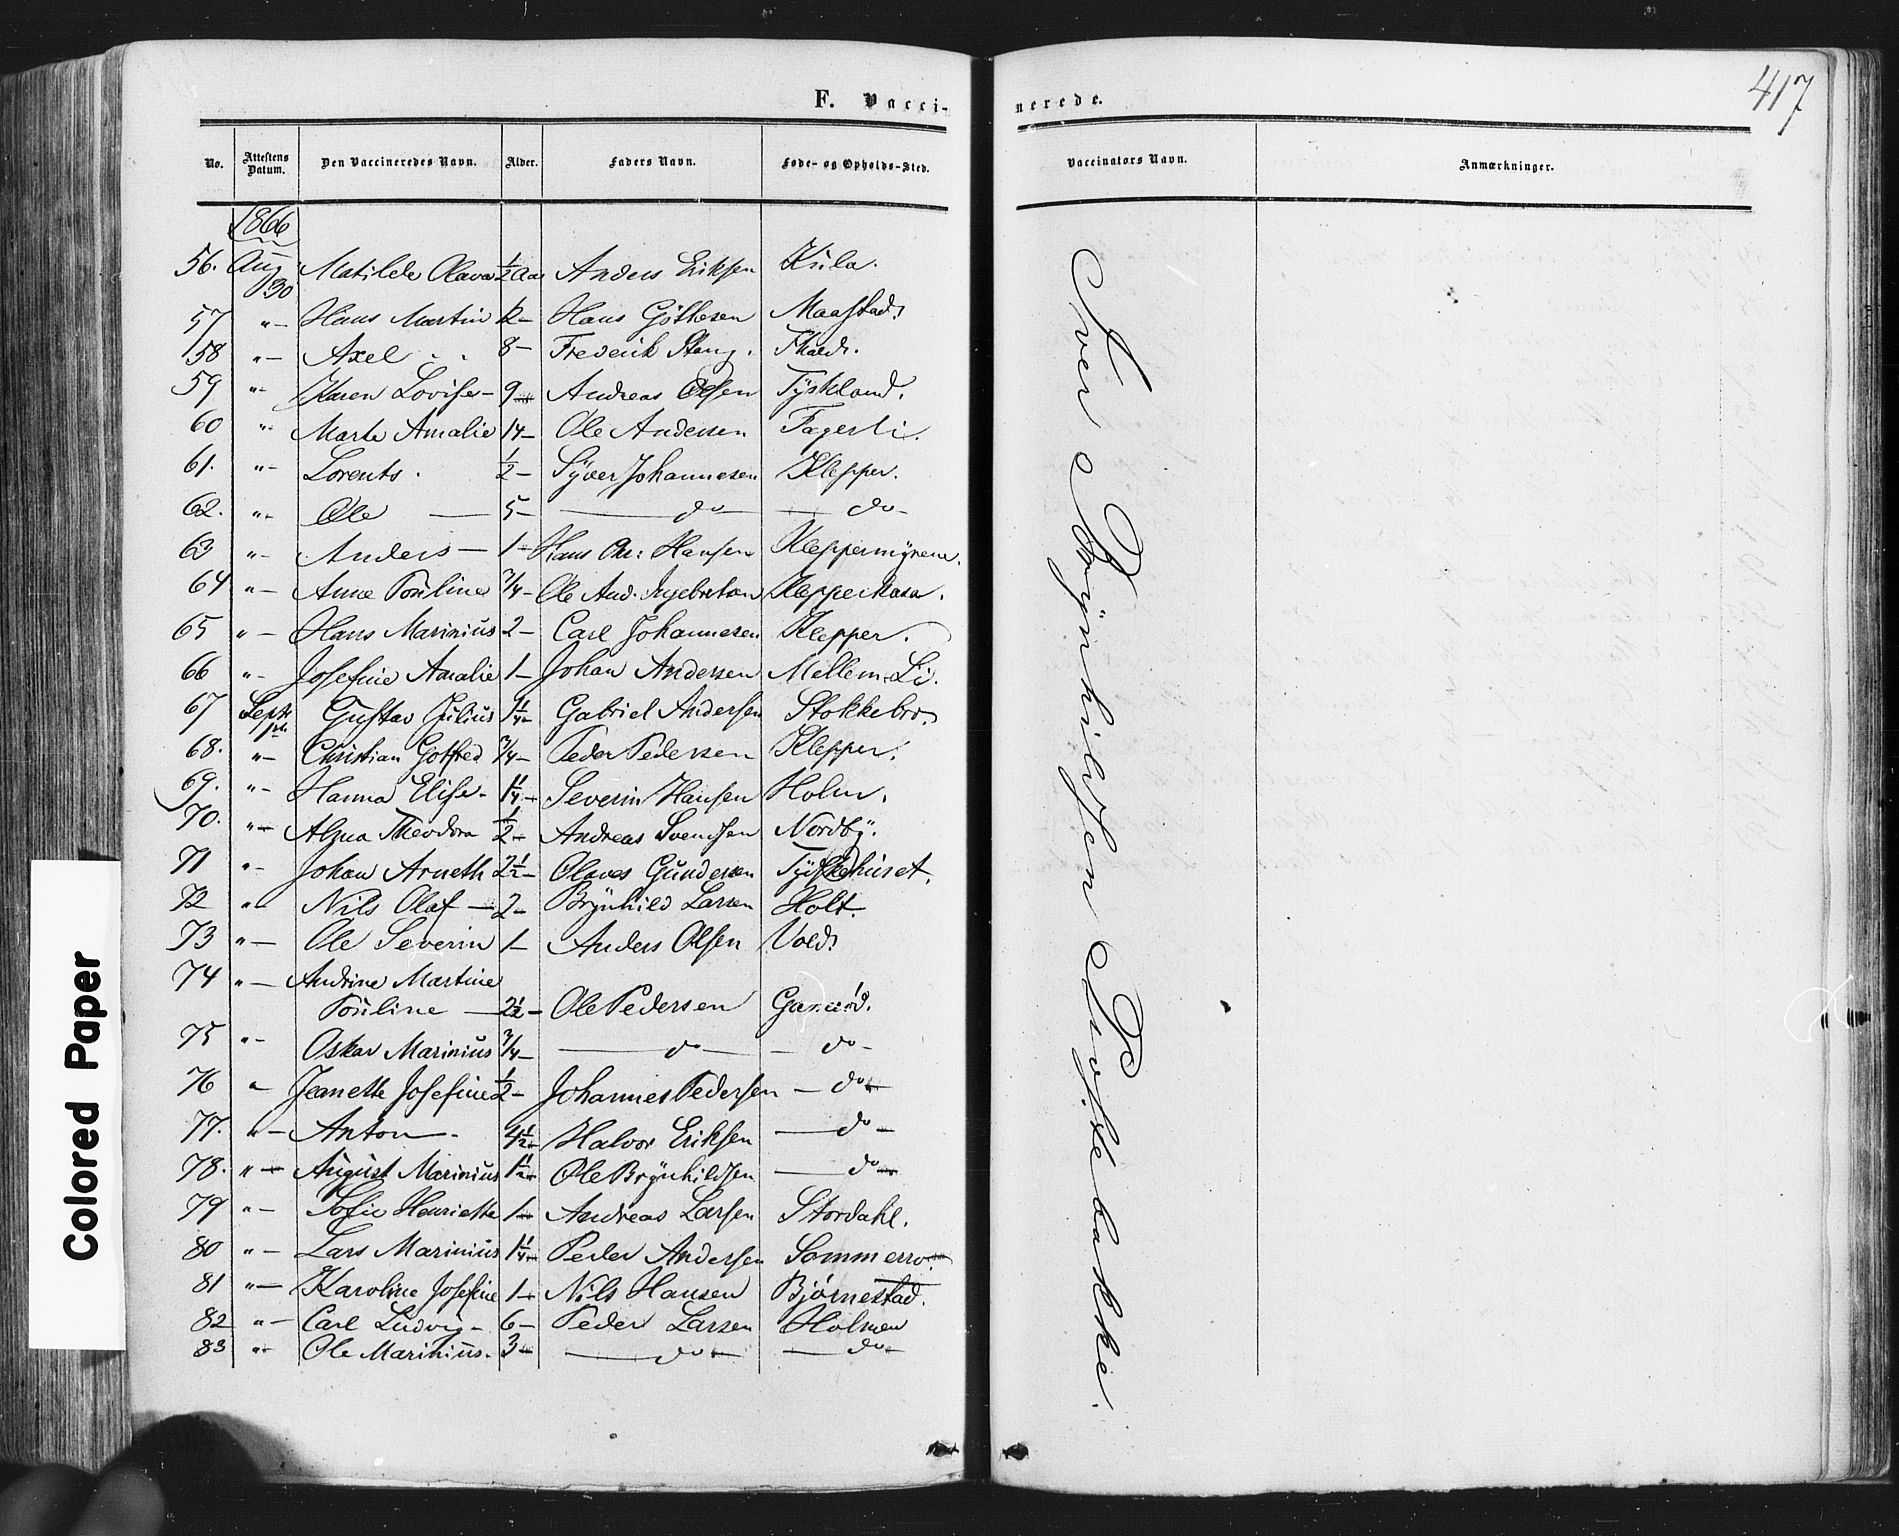 417
F. Vacci-
nerede.
No. Attestens Datum. Den Vaccineredes Navn. Alder. Faders Navn. Føde- og Opholds-Sted. Vaccinators Navn. Anmærkninger.
1866
56. Aug 30 Matilde Olava ½ Aar Anders Eriksen Kula.
57 "- Hans Martin Hans Maastad.
58 "- Axel 8- Frederik Stang.
59 "- Karen Lovise- 9- Andreas Olsen Tyskland.
60 "- Marte Amalie 14- Ole Andersen Fagerli.
61. "- Lorents. ½- Syver Johannesen Klepper.
62. "- Ole 5- do do-
63 "- Anders- 1- Hans Chr: Hansen Kleppermyrene.
64 "- Anne Pouline ¾- Ole And. Ingebretsen
65 "- Hans Marinius 2- Carl Johannesen Klepper.
66 "- Josefine Amalie 1- Johan Andersen Mellem-Li.
67 Septr Gustav Julius 1¼- Gabriel Andersen Stokkebro.
68. "- Christian Gotfred ¾- Peder Pedersen Klepper.
69. "- Hanna Elise- 1¼- Severin Hansen Holm.
70. "- Theodora ½- Andreas Svendsen Nordby.
71 "- Johan Arneth 2½- Olaves Gundersen Tydskehuset.
72 "- Nils Olaf- 2- Brynhild Larsen Holt.
73 "- Ole Severin 1- Anders Olsen Vold.
74 "- Andrine Martine
Pouline 2½- Ole Pedersen
75 "- Oskar Marinius ¾- do do-
76 " Jeanette Josefine ½- Johannes Pedersen -do-
77. "- Anton- 4½- Halvor Eriksen do-
78. "- August Marinius 1½- Ole Brynhildsen do-
79 "- Sofie Henriette 1- Andreas Larsen Stordahl.
80 "- Lars Marinius 1¼- Peder Andersen Sommerro.
81 "- Karoline Josefine 1- Nils Hansen Bjørnestad.
82 "- Carl Ludvig- 6- Peder Larsen Holmen
83 "- Ole Marinius. 3- do- do-
Iver Brynhildsen Prestebakke.
Colored Paper